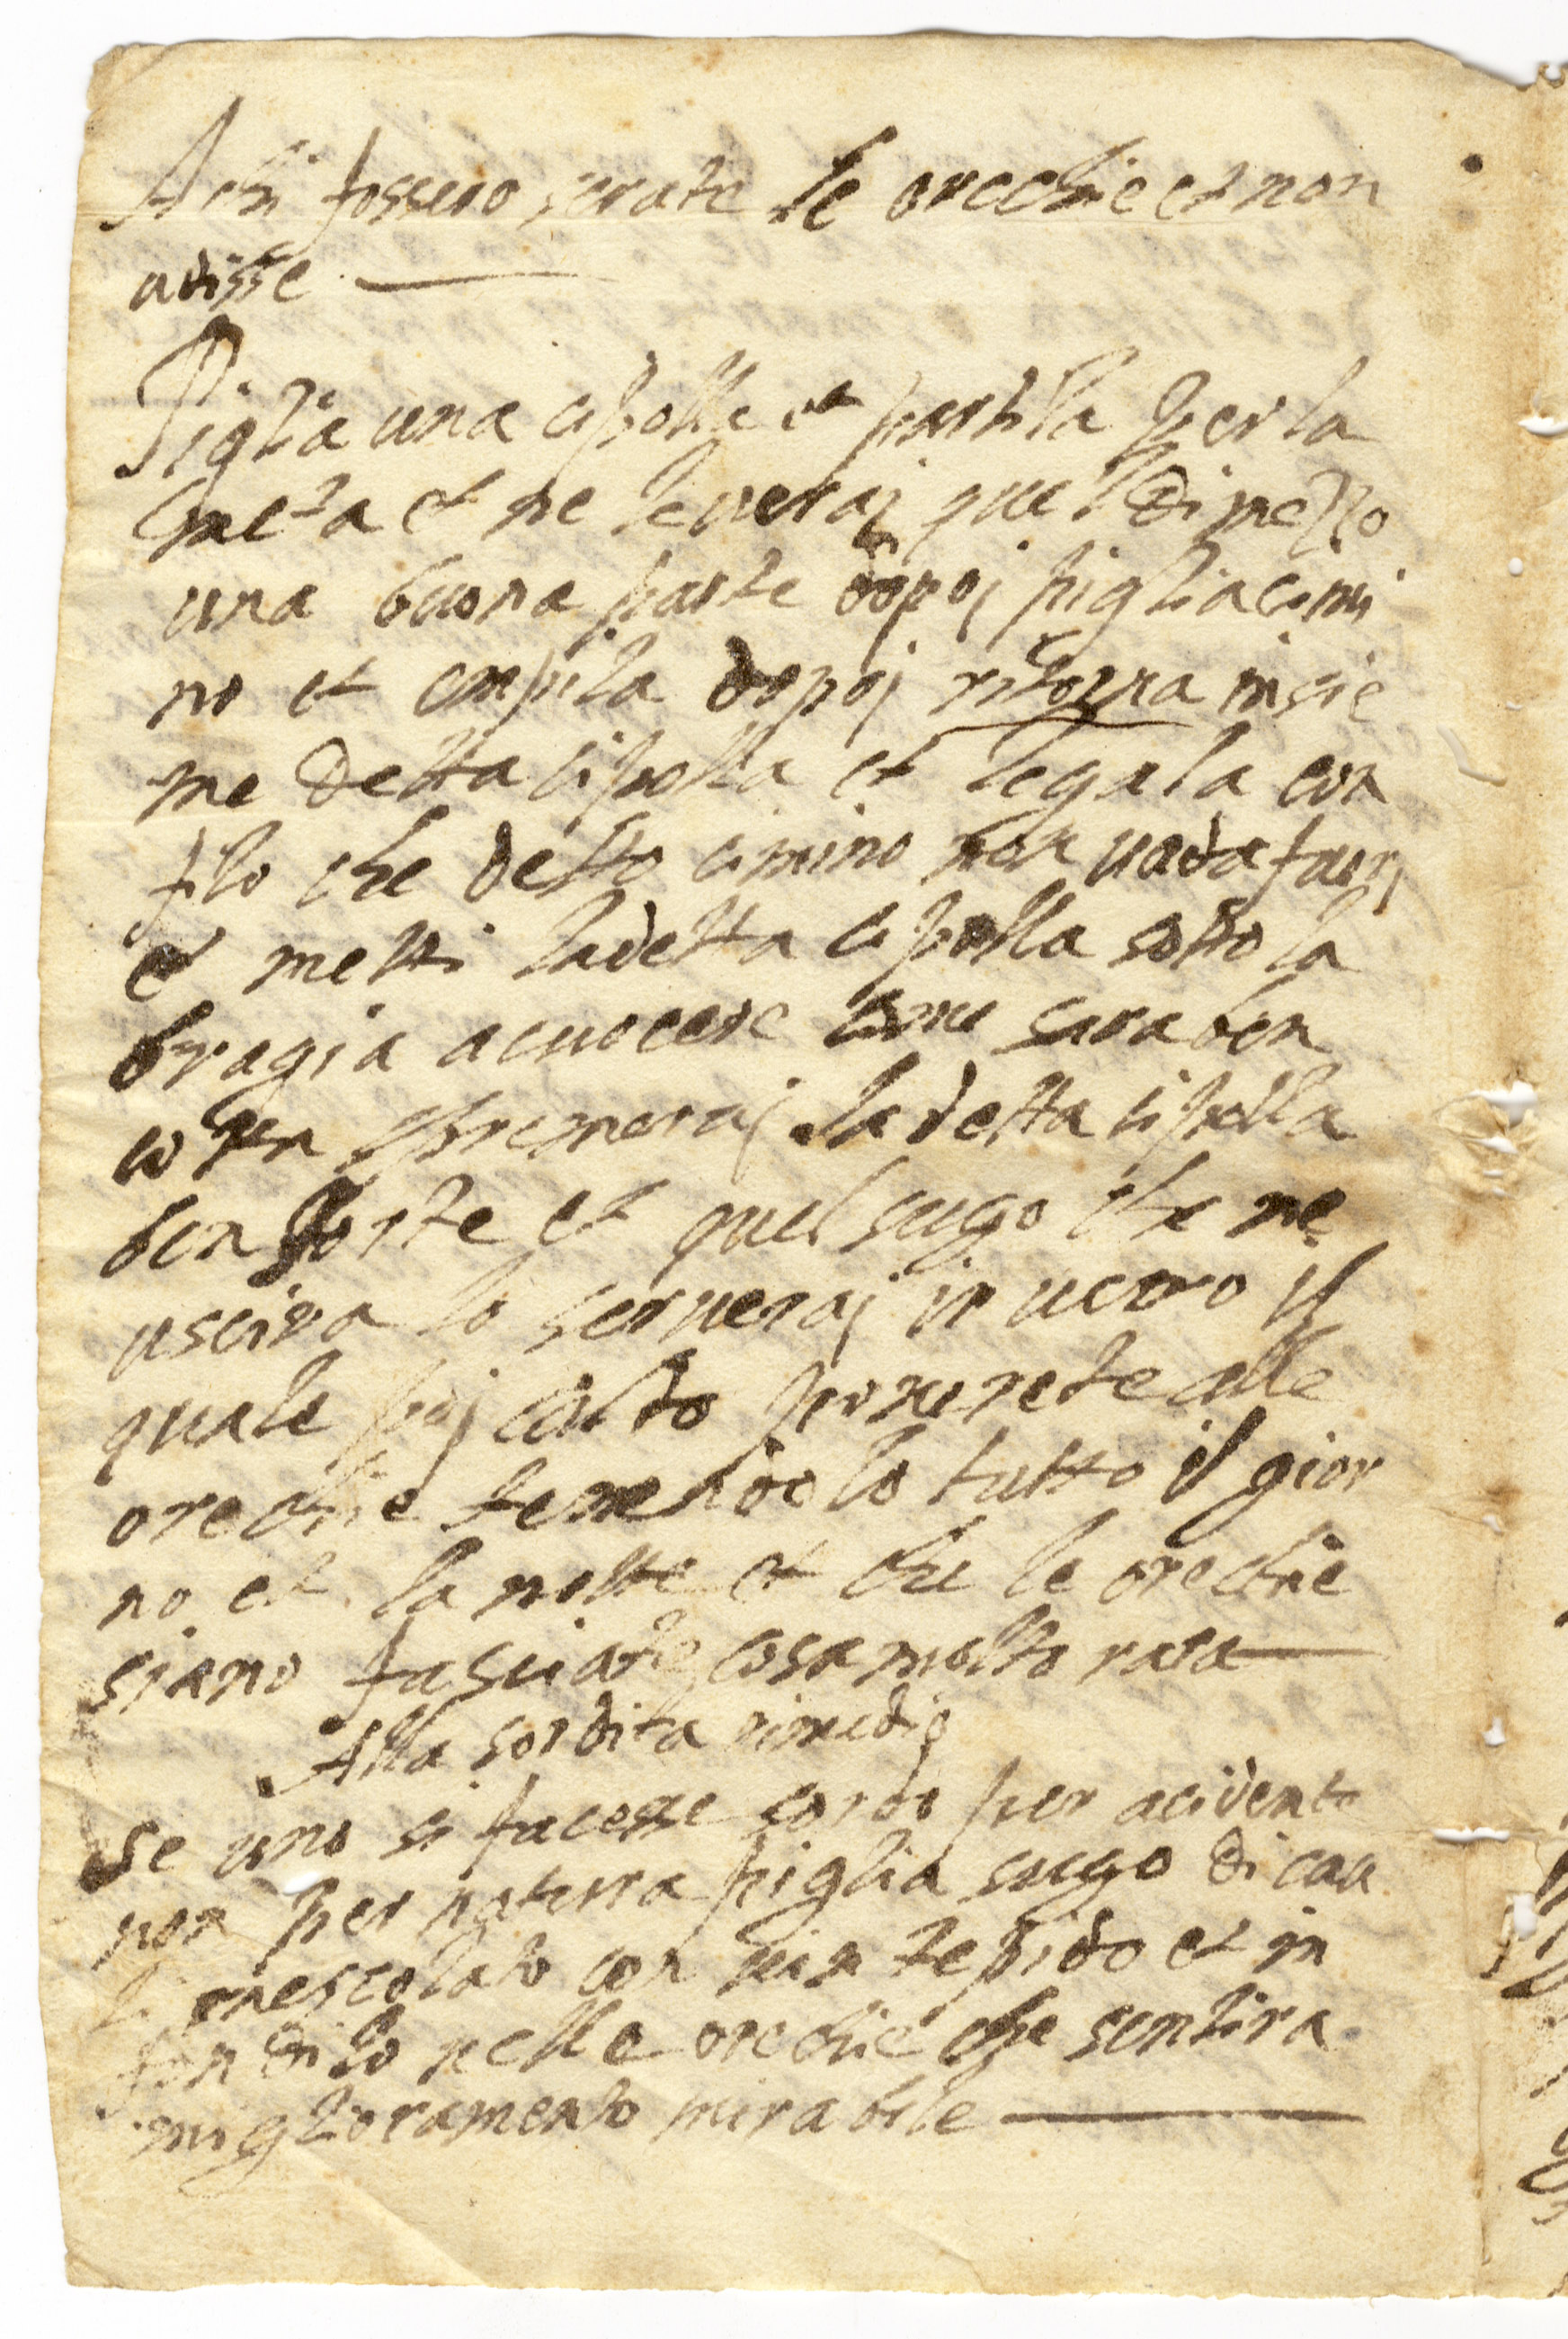 A chi fossero serate le orecchie et non
udisse
Piglia una cipolla et partila per la
metà et ne leverai quel di mezzo
una buona parte dopoi piglia cimi
no et empila dopoi ritorna insie
me detta cipolla et legala con
filo che detto cimino non vada fuori
et metti la detta cipolla sotto la
bragia a cuocere come sara ben
cotta spremerai la detta cipolla
ben forte et quel sugo che ne
uscira lo serverai in vetro il
quale poi caldo ponerete alle
orechie tenendolo tutto il gior
no et la notte et che le orechie
siano fasciate cosa molto rara
Alla sordita rimedio
Se uno si facesse sordo per acidente
non per natura piglia sugo di cau
li mescolato con vin tepido et in
fondilo nelle orechie che sentira
miglioramento mirabile